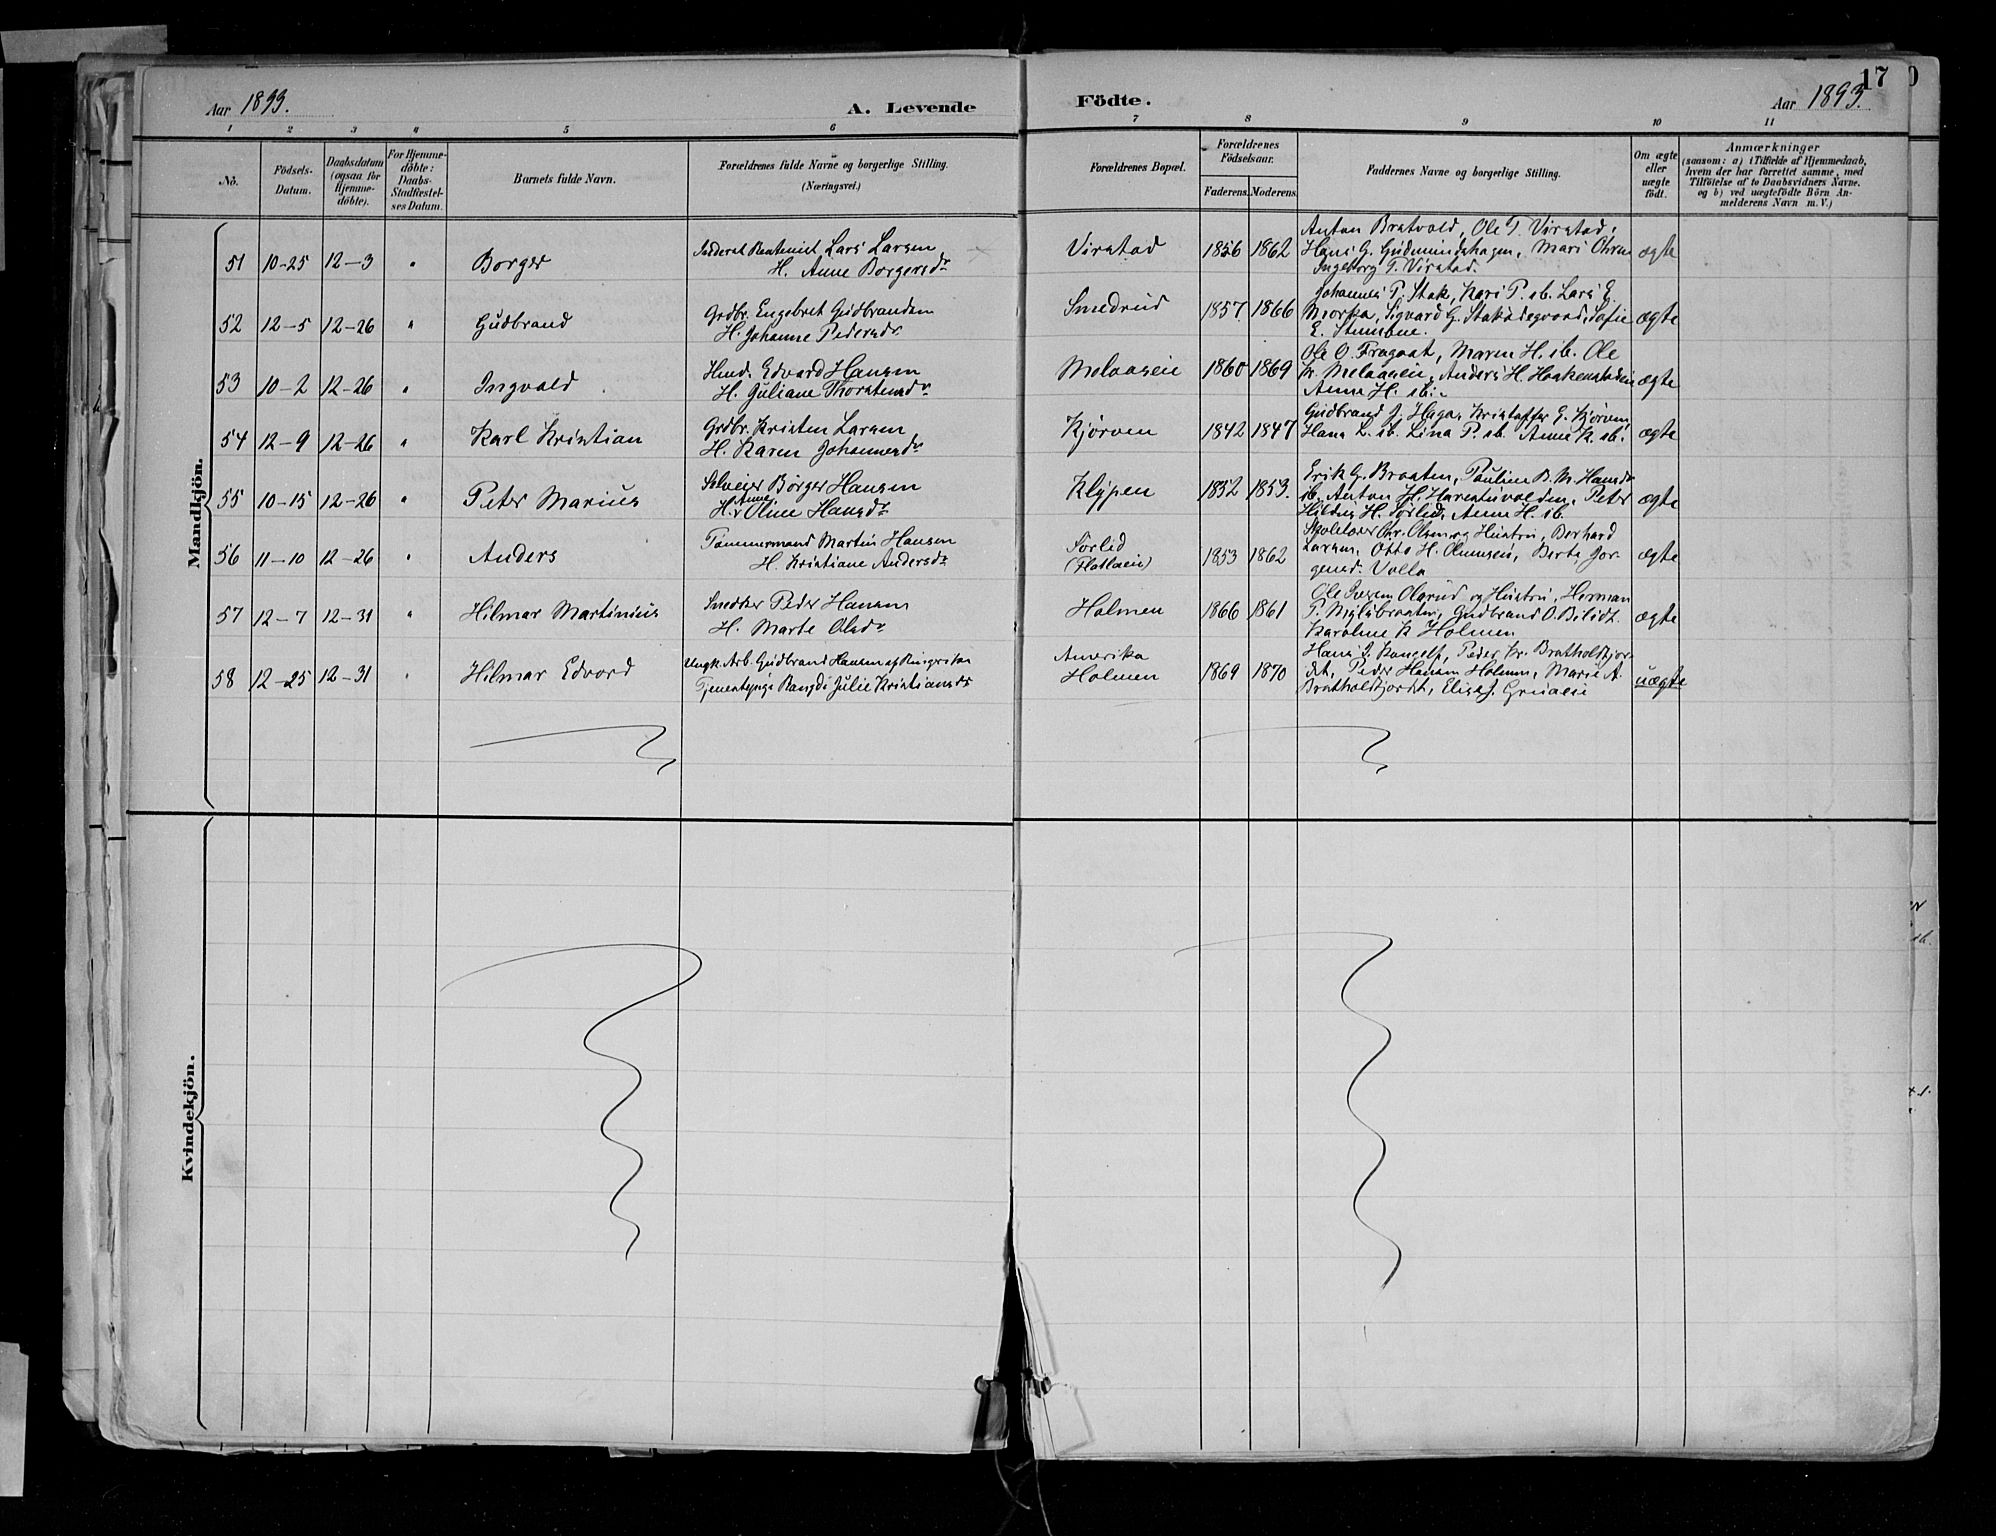 17
Aar 1893. A. Levende Födte. Aar 1893.
1 2 3 4 5 6 7 8 9 10 11
No. Födsels-Datum. Daabsdatum (ogsaa for Hjemme-döbte). For Hjemme-döbte: Daabs-Stadfæstel-ses Datum. Barnets fulde Navn. Forældrenes fulde Navne og borgerlige Stilling. (Næringsvei.) Forældrenes Bopæl. Forældrenes Födselsaar. Faderens. Moderens. Faddernes Navne og borgerlige Stilling. Om ægte eller uægte födt. Anmærkninger (saasom: a) i Tilfælde af Hjemmedaab, hvem der har forrettet samme, med Tilföielse af to Daabsvidners Navne. og b) ved uægtefödte Börn An-melderens Navn m. V.)
Mandkjön.
51 10-25 12-3 " Borger
Lars Larsen
H. Anne Borgersdr
Virstad 1856 1862
Anton Bratvold, Ole T. Virstad,
Hans G. Gudmundshagen, Mari
Ingeborg T. Virstad.
ægte
52 12-5 12-26 " Gudbrand
Grdbr. Engebret Gudbrandsen
H. Johanne Pedersdr
Smedrud 1857 1866
Johannes P. Stak, Kari P. sb. Lars E.
Morka, Sigvard G. Sofie
E. Stensbne.
ægte
53 10-2 12-26 " Ingvald
Husmd. Edvard Hansen
H. Juliane Thorstensdr
Melaaseie 1860 1869
Ole O. Fragaat, Maren H. ib. Ole
Kr. Melaaseie, Anders H. Haakenstadeie
Anne H. ib.
ægte
54 12-9 12-26 " Karl Kristian
Grdbr. Kristen Larsen
H. Karen Johannesdr
Kjörven 1842 1847
Gudbrand J. Haga, Kristoffer E. Kjörven,
Hans L. ib. Lina P. ib. Anne K. ib.
ægte
55 10-15 12-26 " Peter Marius
Selveier Börger Hansen
H. Anne Oline Hansdr
Klypen 1852 1853.
Erik G. Braaten, Pauline B. M. Hansdr
ib. Anton H. Peter
H. Sörlid, Anne H. ib.
ægte
56 11-10 12-26 " Anders
Tömmermand Martin Hansen
H. Kristiane Andersdr
Sörlid
(Flatlaeie)
1853 1862
Skolelærer Chr. Olsen og Hustru, Berhard
Larsen, Otto H. Berte Jör-
gensd. Volla
ægte
57 12-7 12-31 " Hilmar Martinius
Snedker Peder Hansen
H. Marte Olsdr
Holmen 1866 1861
Ole Iversen Olsrud og Hustru, Herman
P. Myhsbraaten, Gudbrand O. Bilidt.
Karoline K Holmen
ægte
58 12-25 12-31 " Hilmar Edvord
Ungk. Arb. Gudbrand Hansen af Ringerike
Tjenestepige Rangdi Julie Kristiansdr
Amerika
Holmen
1869 1870
Hans J. Rangelt, Peder Kr. Bratholtfjor-
det, Peder Hansen Holmen, Marie A.
Bratholtfjordet, Elise J. Grinaeie
uægte
Kvindekjön.